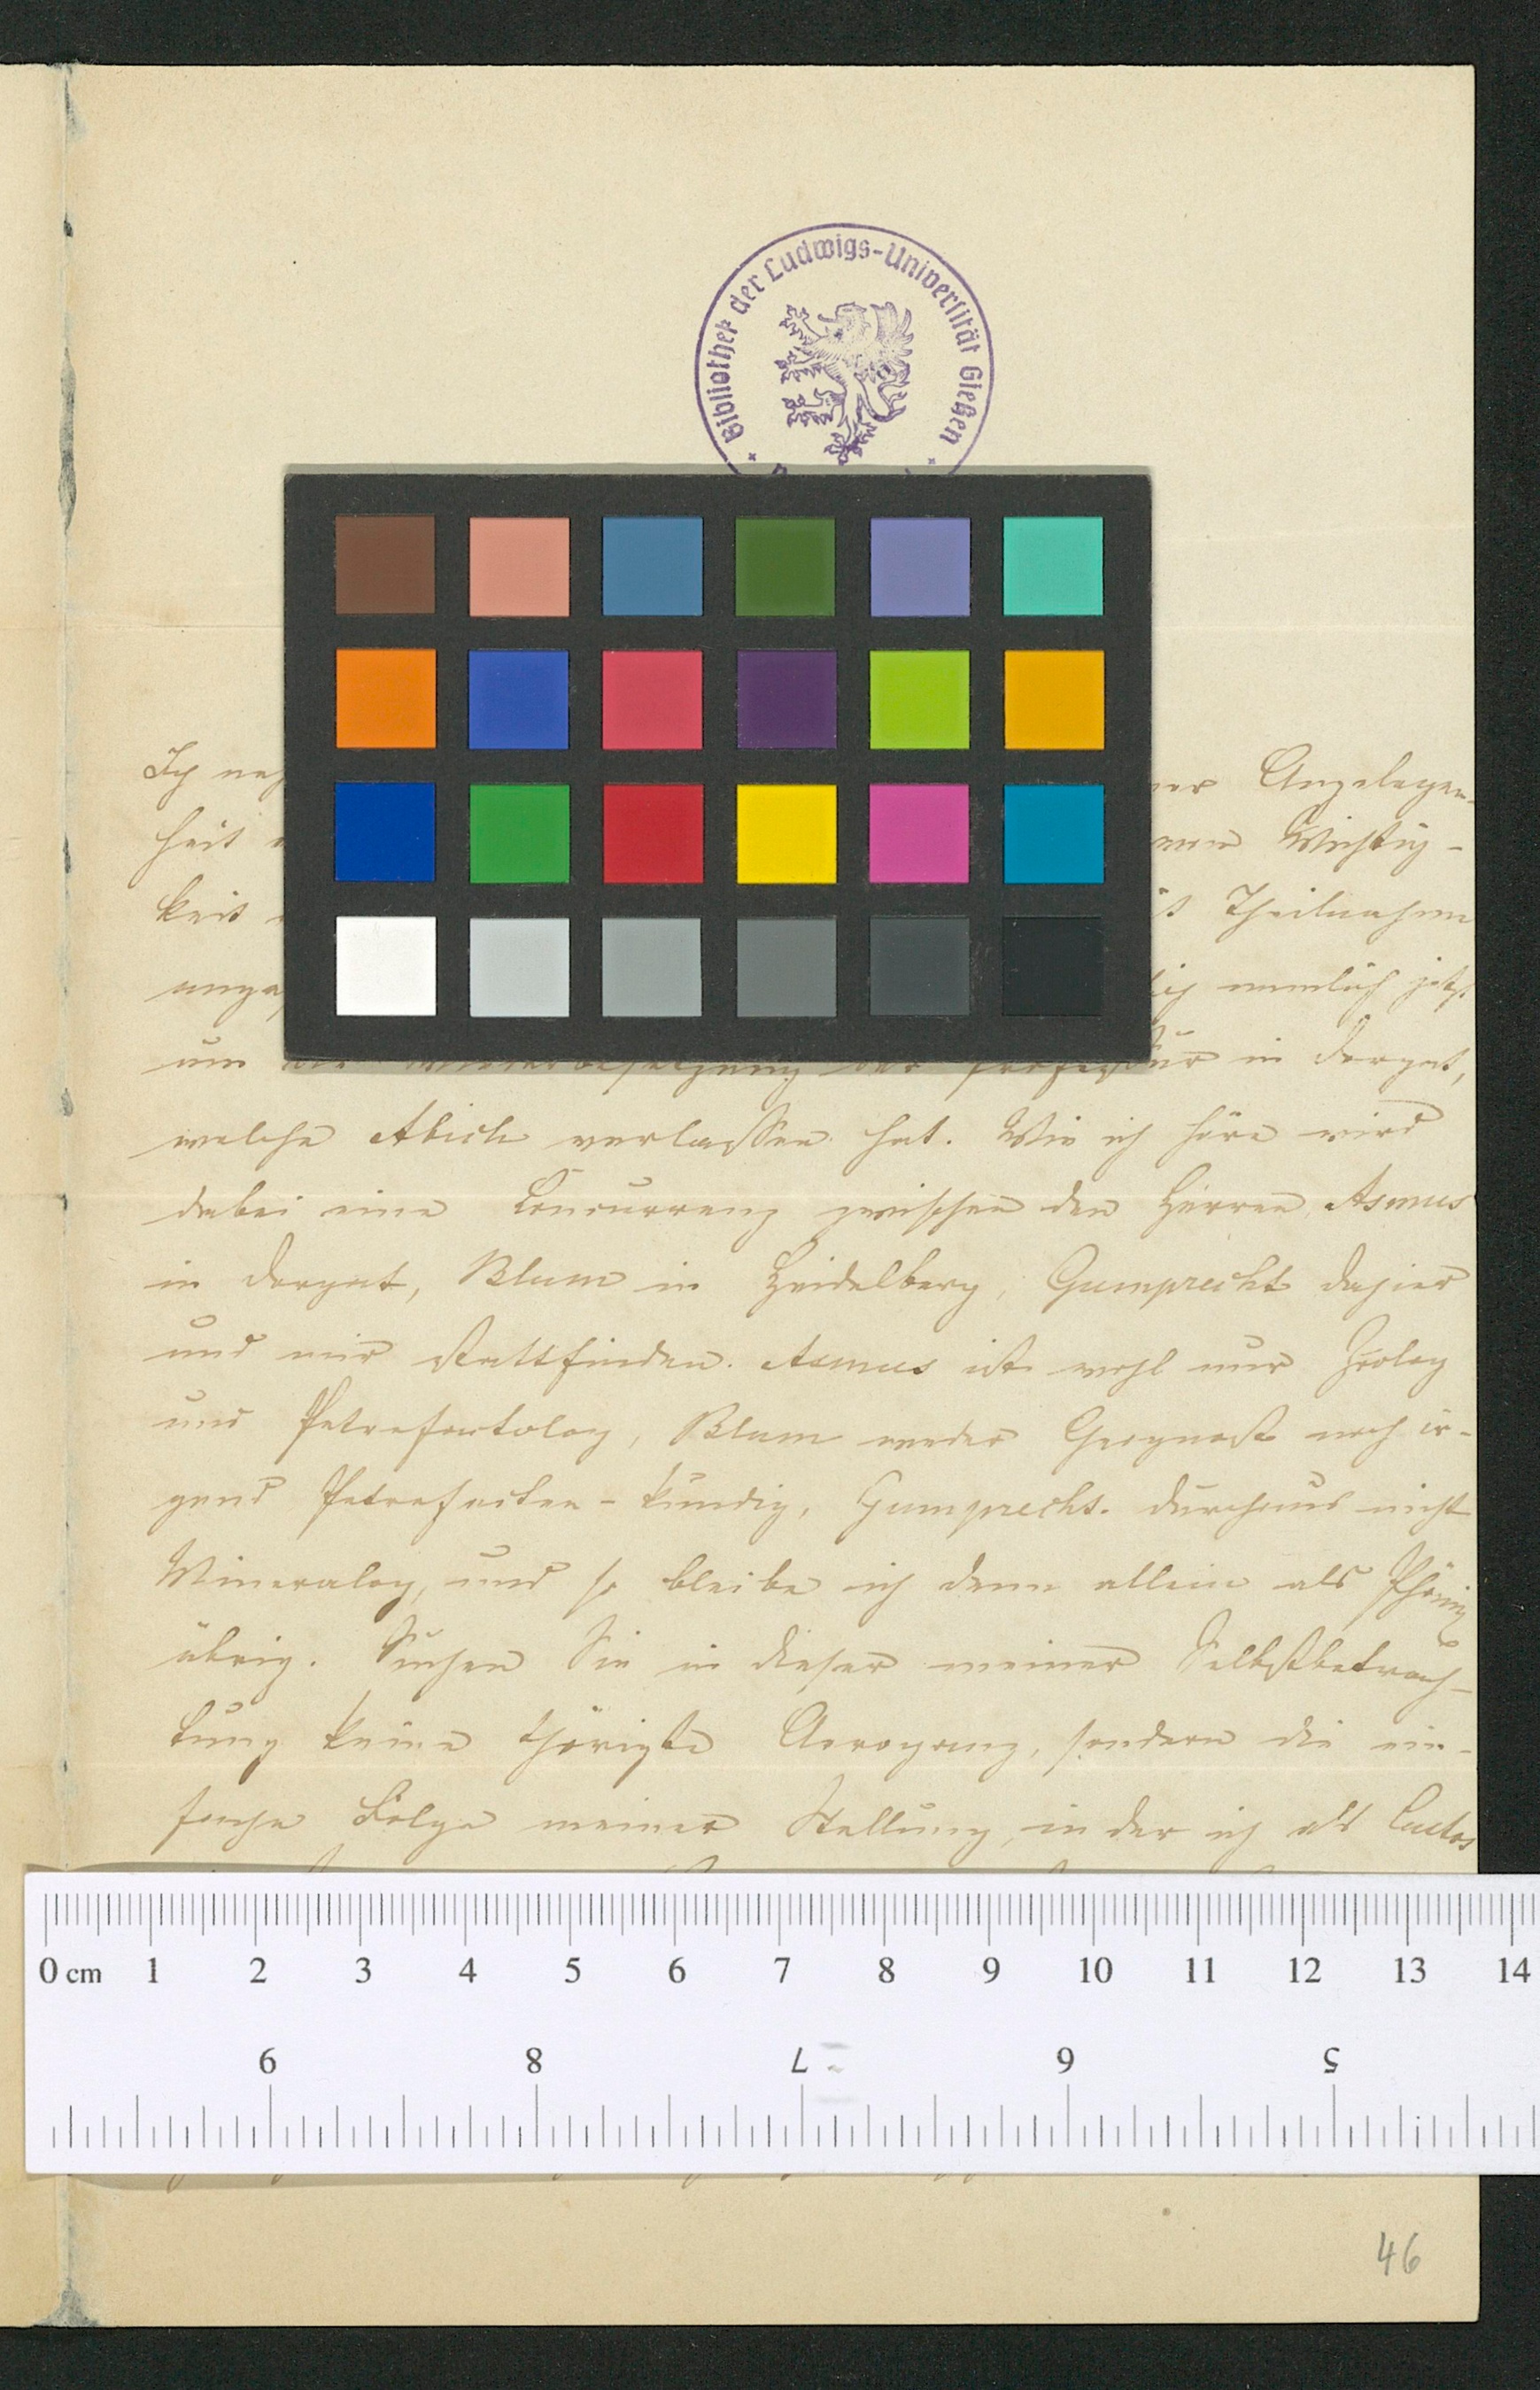 Bibliothek der Ludwigs-Universität Gießen
Ich
Angelegen-
heit
Wichtig-
keit
Theilnahme
nemlich jetzt
um die Wiederbesetzung der Professur in Dorpat,
welche Abich verlassen hat. Wie ich höre wird
dabei eine Concurrenz zwischen den Herren Asmus
in Dorpat, Blum in Heidelberg, Gumprecht dahier
und mir stattfinden. Asmus ist wohl nur Zoolog
und Petrefactolog, Blum weder Geognost noch ir-
gend Petrefacten-kundig, Gumprecht durchaus nicht
Mineralog, und so bleibe ich denn allein als Phönix
übrig. Suchen Sie in dieser meiner Selbstbetrach-
tung keine thörigte Arroganz, sondern die ein-
fache Folge meiner Stellung, in der ich als Custos
0 cm 1 2 3 4 5 6 7 8 9 10 11 12 13 14
9 8 7 6 5
46